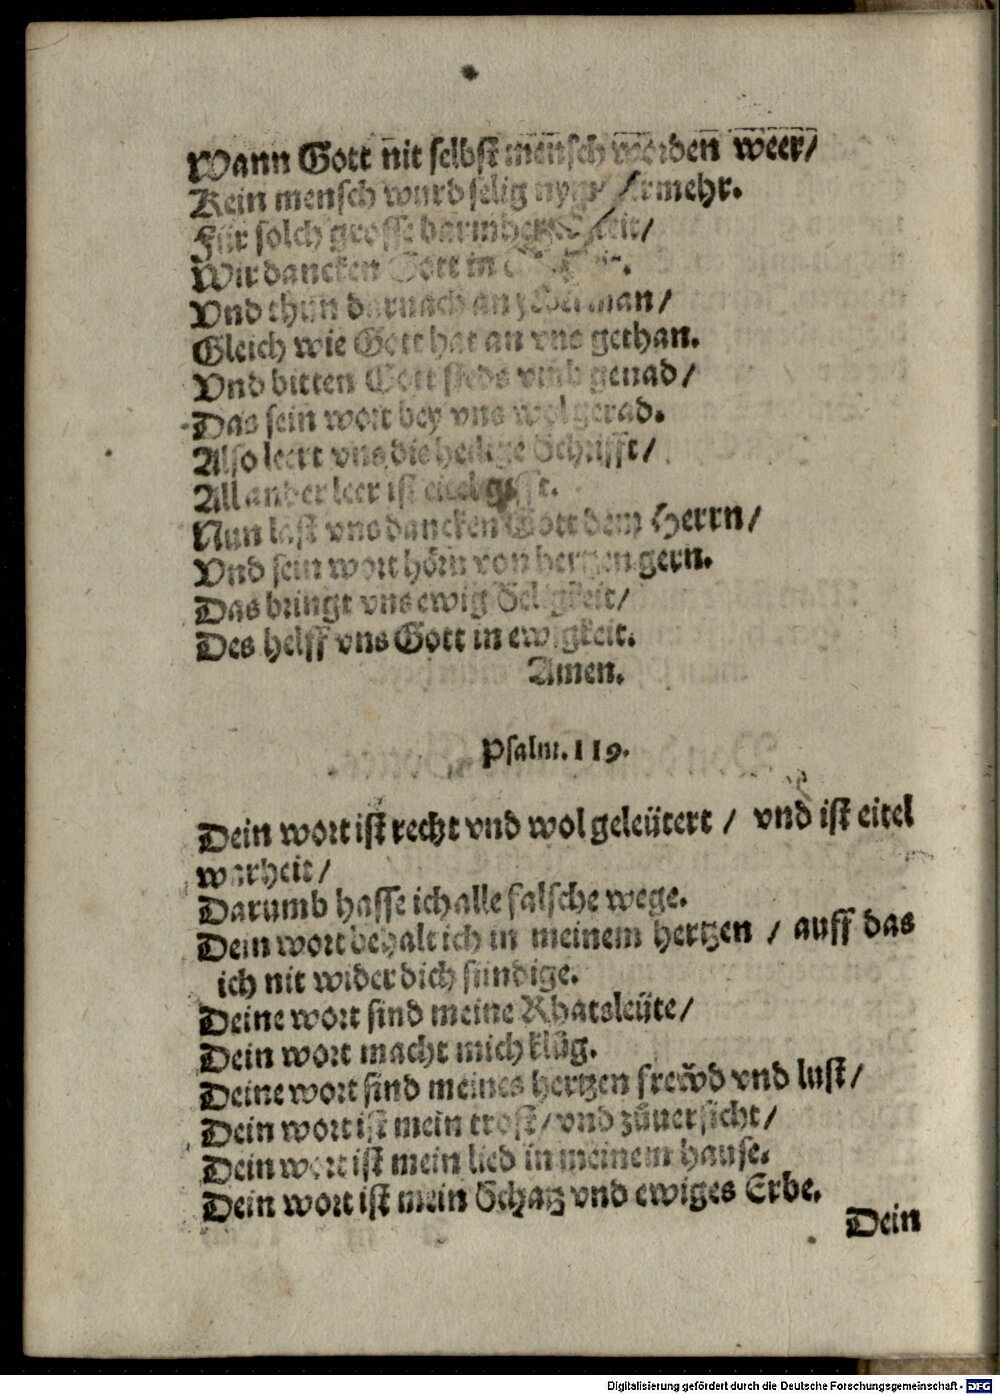 Wann Gott nit selbst mensch worden weer/
Kein mensch wurd selig nymmermehr.
Für solch grosse barmhertzigkeit/
Wir dancken Gott in
Vnd thůn darnach an yederman/
Gleich wie Gott hat an vns gethan.
Vnd bitten Gott steds vmb genad/
Das sein wort bey vns wol gerad.
Also leert vns die heilige Schrifft/
All ander leer ist eitel gifft.
Nun last vns dancken Gott dem Herrn/
Vnd sein wort hörn von hertzen gern.
Das bringt vns ewig Seligkeit/
Des helff vns Gott in ewigkeit.
Amen.
Psalm. 119.
Dein wort ist recht vnd wol geleütert / vnd ist eitel
warheit/
Darumb hasse ich alle falsche wege.
Dein wort behalt ich in meinem hertzen / auff das
ich nit wider dich sündige.
Deine wort sind meine Rhatsleüte/
Dein wort macht mich klůg.
Deine wort sind meines hertzen frewd vnd lust/
Dein wort ist mein trost/ vnd zůuersicht/
Dein wort ist mein lied in meinem hause.
Dein wort ist mein Schatz vnd ewiges Erbe.
Dein
Digitalisierung gefördert durch die Deutsche Forschungsgemeinschaft - DFG